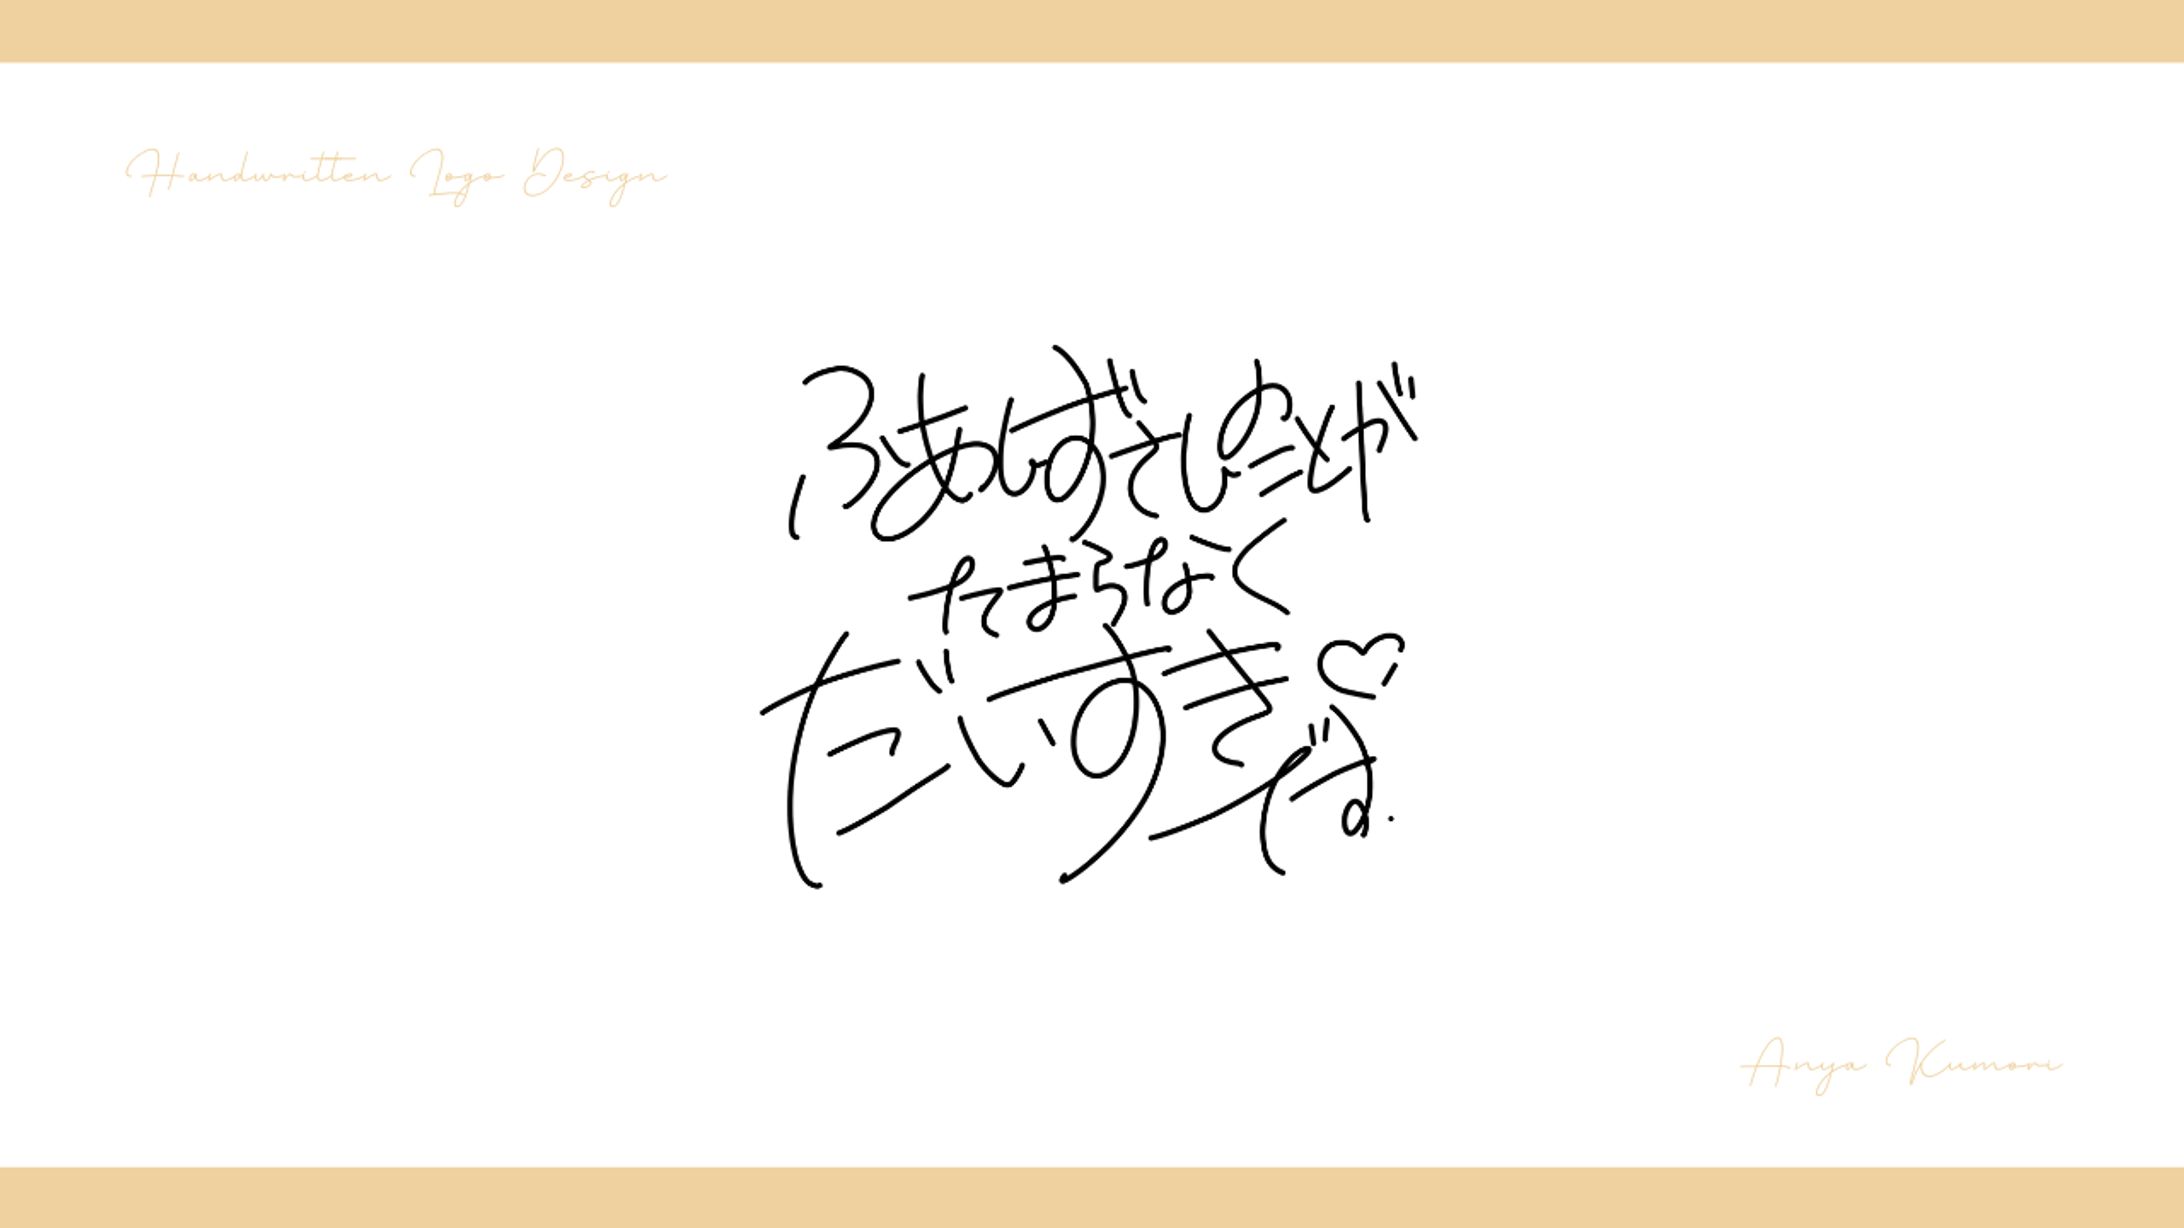 Handwritten Logo Design
ふあんずさんのことが
たまらなく
だいすき♡
です.
Anya Kumori